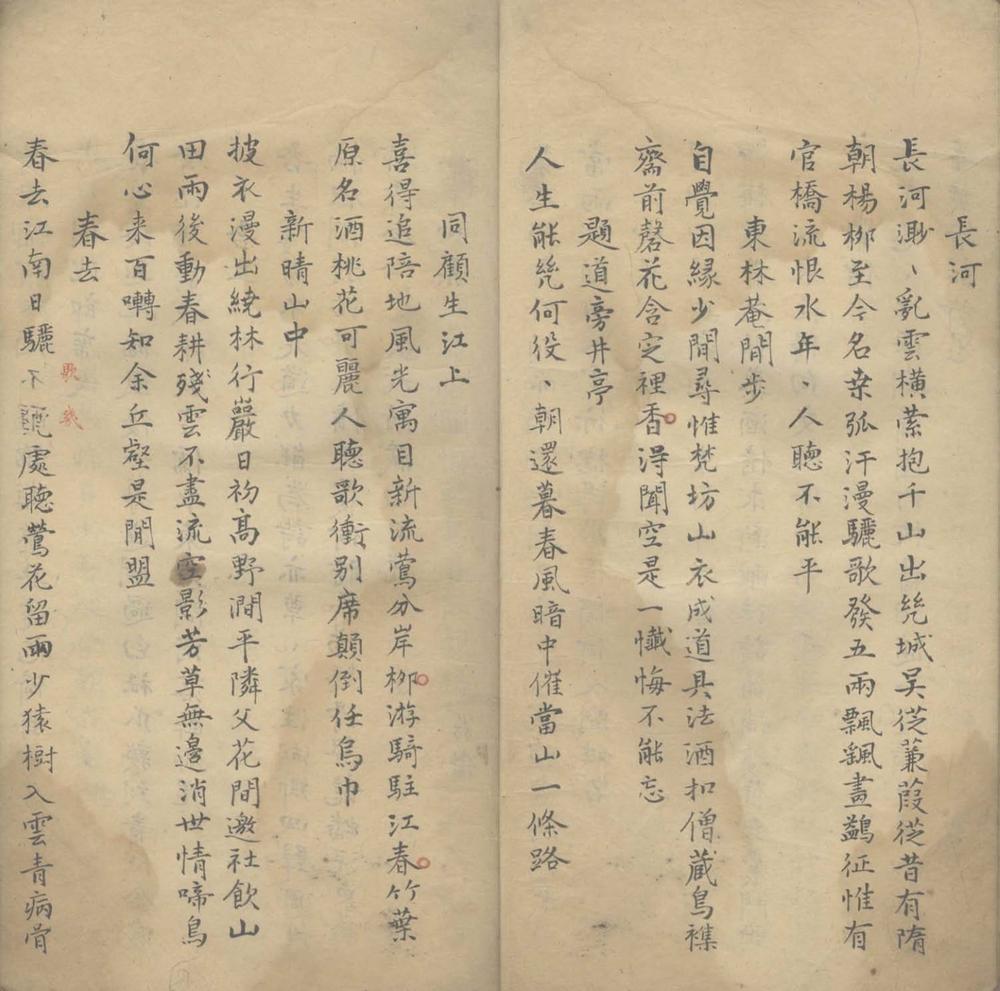 長河
長河渺〻亂雲橫縈抱千山出幾城吴從蒹葭從昔有隋
朝楊柳至今名桒弧汗漫驪歌發五兩飄颻畫鷁征惟有
官橋流恨水年〻人聽不能平
東林菴閒步
自覺因緣少閒尋惟梵坊山衣成道具法酒扣僧藏鳥襍
齋前磬花含定裡香淂聞空是一懺悔不能忘
題道旁井亭
人生能幾何役〻朝還暮春風暗中催當山一條路
同顧生江上
喜得追陪地風光寓目新流鶯分岸柳游騎駐江春竹葉
原名酒桃花可麗人聽歌衝别席顛倒任烏巾
新晴山中
披衣漫出繞林行巖日初髙野澗平隣父花間邀社飲山
田雨後動春耕殘雲不盡流空影芳草無邊消世情啼鳥
何心来百囀知余丘壑是閒盟
春去
春去江南日驪不處聽鶯花留雨少猿樹入雲青病骨
歌幾